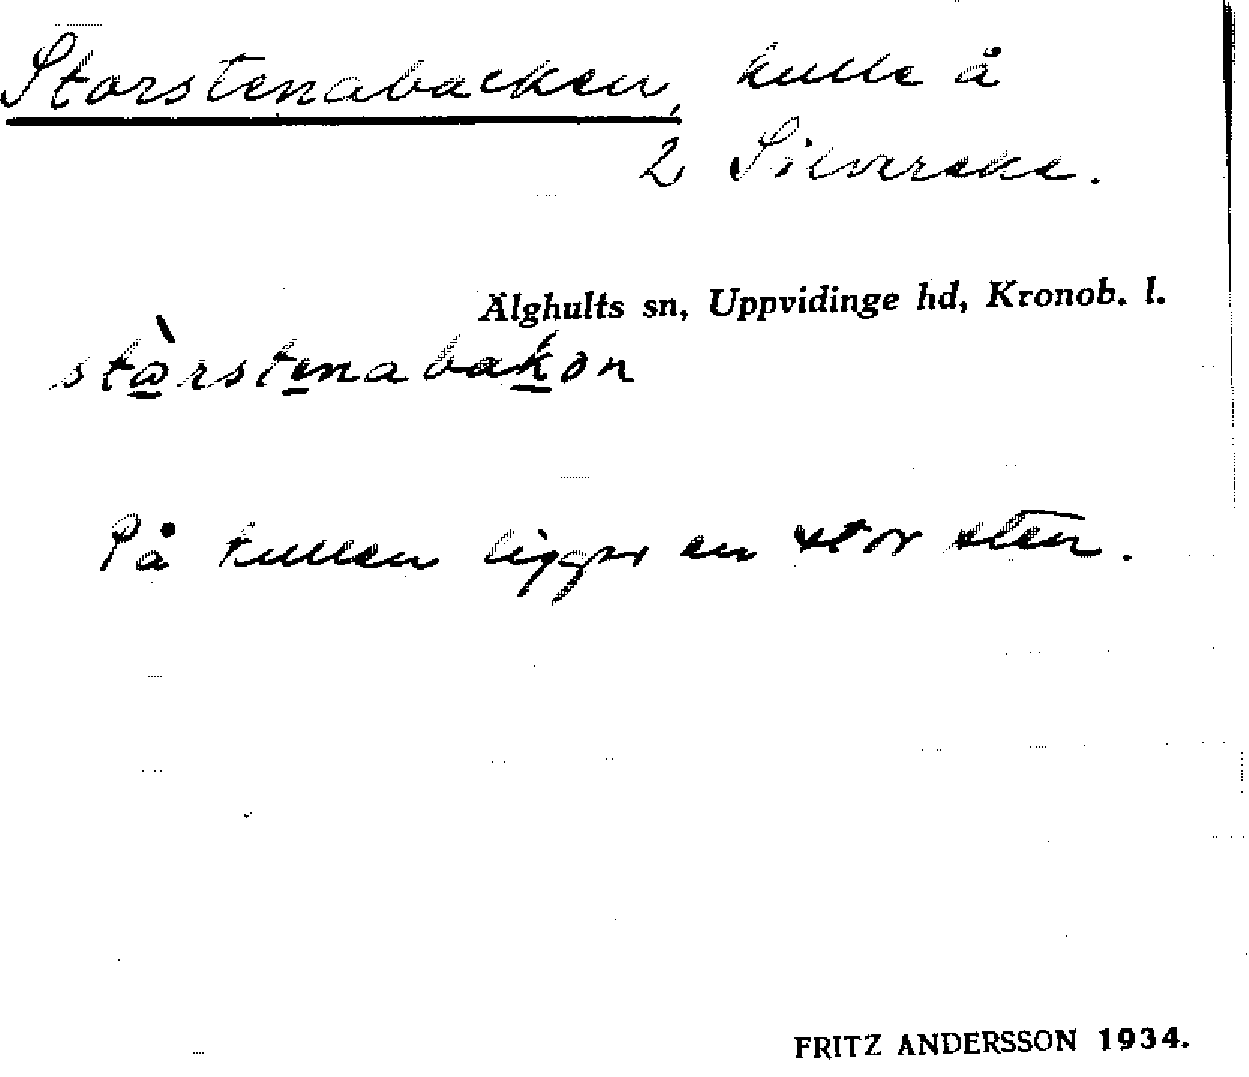 Storstenabacken, kulle å
2 Silvereke.
Älghults sn, Uppvidinge hd, Kronob. l.
stòrstenabakən
På kullen ligger en stor sten.
FRITZ ANDERSSON 1934.